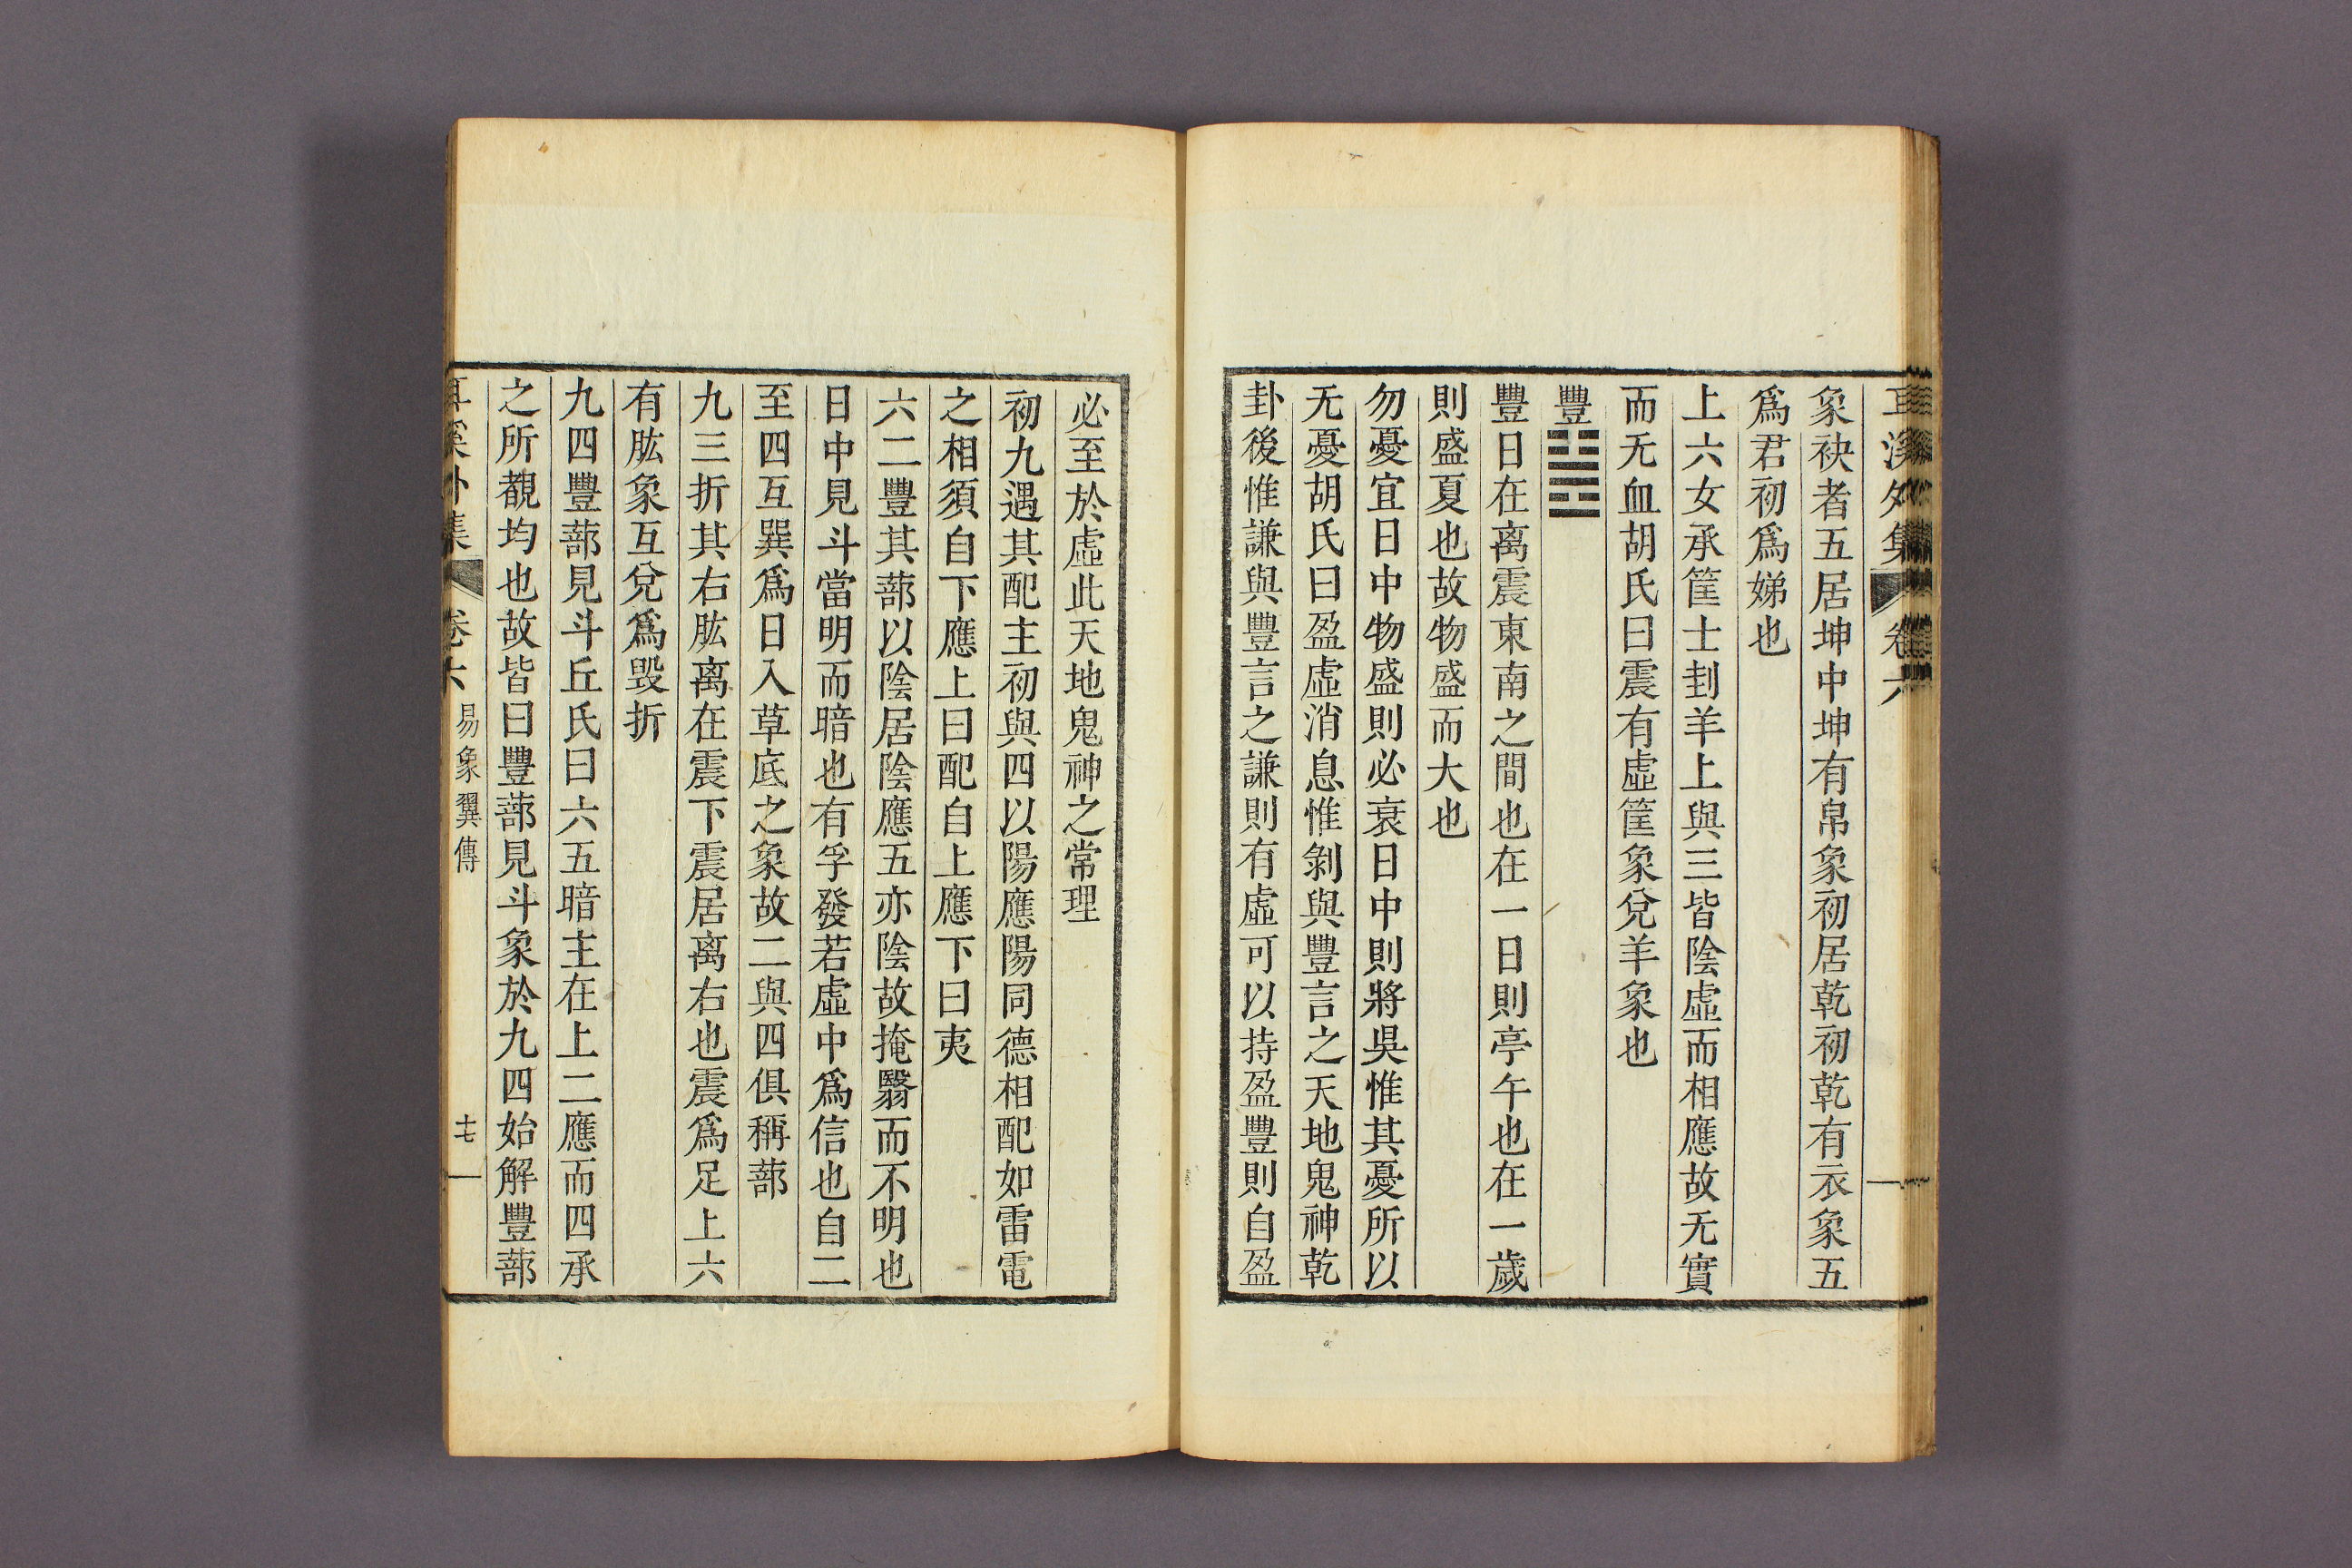 耳溪外集 卷六
象袂者五居坤中坤有帛象初居乾初乾有衣象五
爲君初爲娣也
上六女承筐士刲羊上與三皆陰虛而相應故无實
而无血胡氏曰震有虛筐象兌羊象也
豐䷶
豐日在离震東南之間也在一日則亭午也在一歲
則盛夏也故物盛而大也
勿憂宜日中物盛則必衰日中則將昃惟其憂所以
无憂胡氏曰盈虛消息惟剝與豐言之天地鬼神乾
卦後惟謙與豐言之謙則有虛可以持盈豐則自盈
必至於虛此天地鬼神之常理
初九遇其配主初與四以陽應陽同德相配如雷電
之相須自下應上曰配自上應下曰夷
六二豐其蔀以陰居陰應五亦陰故掩翳而不明也
日中見斗當明而暗也有孚發若虛中爲信也自二
至四互巽爲日入草底之象故二與四俱稱蔀
九三折其右肱离在震下震居离右也震爲足上六
有肱象互兌爲毀折
九四豐蔀見斗丘氏曰六五暗主在上二應而四承
之所覩均也故皆曰豐蔀見斗象於九四始解豐蔀
耳溪外集 卷六 易象翼傳 十七